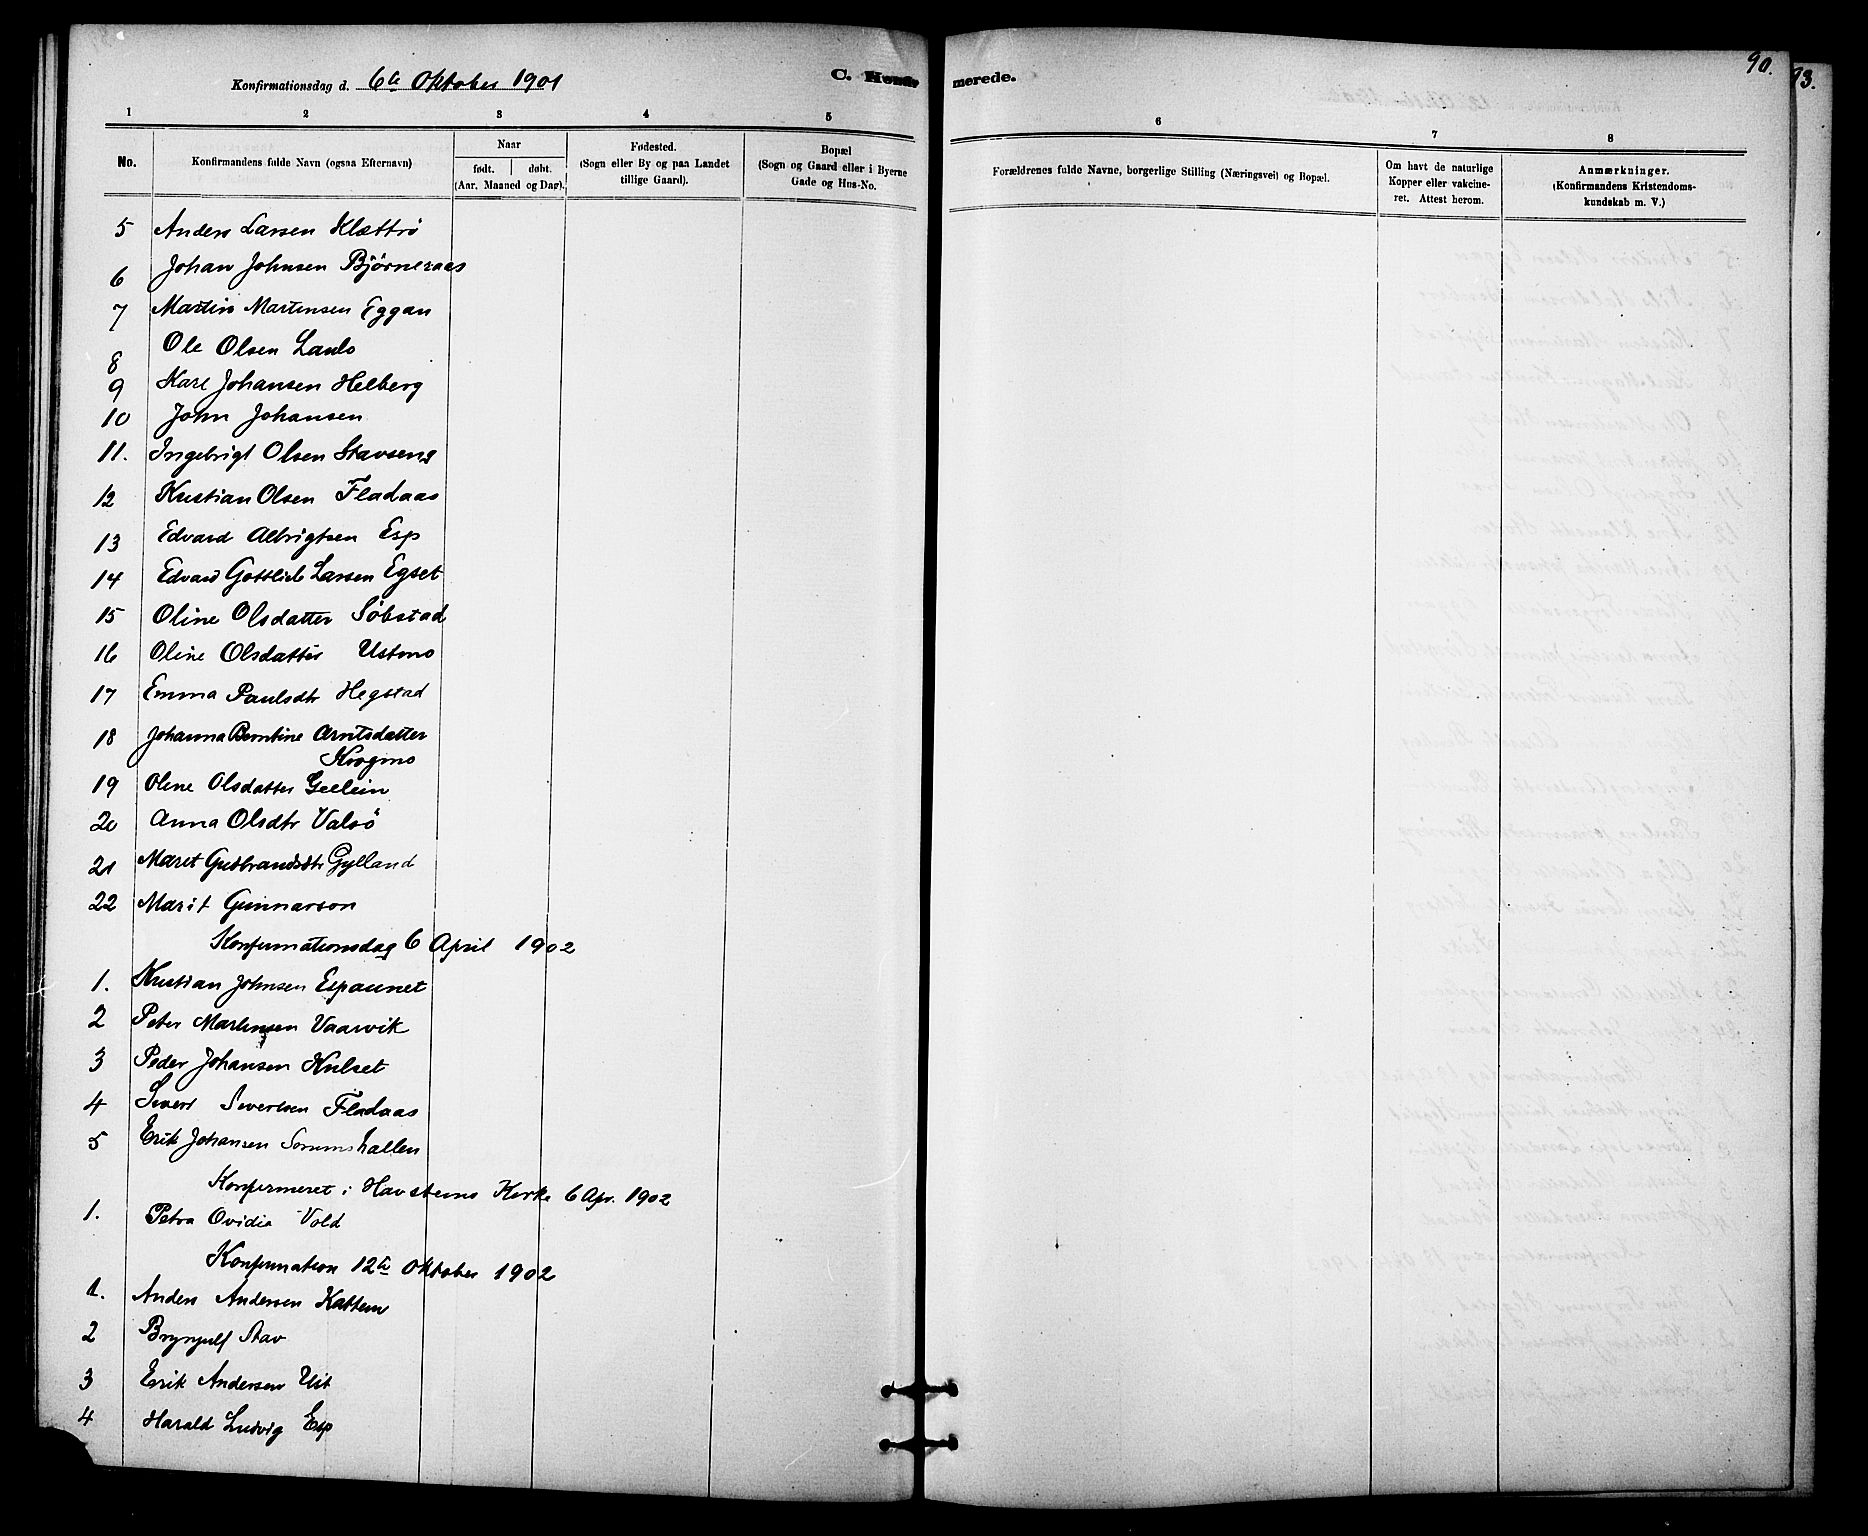 90.
93.
Konfirmationsdag d. 6te Oktober 1901
C. Konfir merede.
1 2 3 4 5 6 7 8
No.
Konfirmandens fulde Navn (ogsaa Efternavn)
Naar
født. døbt.
(Aar, Maaned og Dag).
Fødested.
(Sogn eller By og paa Landet
tillige Gaard).
Bopæl
(Sogn og Gaard eller i Byerne
Gade og Hus-No.
Forældrenes fulde Navne, borgerlige Stilling (Næringsvei) og Bopæl.
Om havt de naturlige
Kopper eller vakcine-
ret. Attest herom.
Anmærkninger.
(Konfirmandens Kristendoms-
kundskab m. V.)
5 Anders Larsen Klættrø
6 Johan Johnsen Bjørneraas
7 Martin Martinsen Eggan
8 Ole Olsen
9 Karl Johansen Helberg
10 John Johansen
11. Ingebrigt Olsen Stavseng
12 Kristian Olsen Fladaas
13 Edvard Albrigtsen Esp
14 Edvard Gottlieb Larsen Egset
15 Oline Olsdatter Søbstad
16 Oline Olsdatter Ustmo
17 Emma Paulsdtr Hegstad
18 Johanna Berntine Arntsdatter
Krogmo
19 Oline Olsdatter
20 Anna Olsdtr Valsø
21 Maret Gudbrandsdtr Gylland
22 Marit Gunnarson
Konfirmationsdag 6 April 1902
1. Kristian Johnsen Espaunet
2 Peter Martinsen Vaarvik
3 Peder Johansen Hulset
4 Sivert Sivertsen Fladaas
5 Erik Johansen
Konfirmeret i Havsteins Kirke 6 Apr. 1902
1. Petra Ovidia Vold
Konfirmation 12te Oktober 1902
1. Anders Andersen Kattem
2 Brynjulf Stav
3 Erik Andersen Ust
4 Harald Ludvig Esp